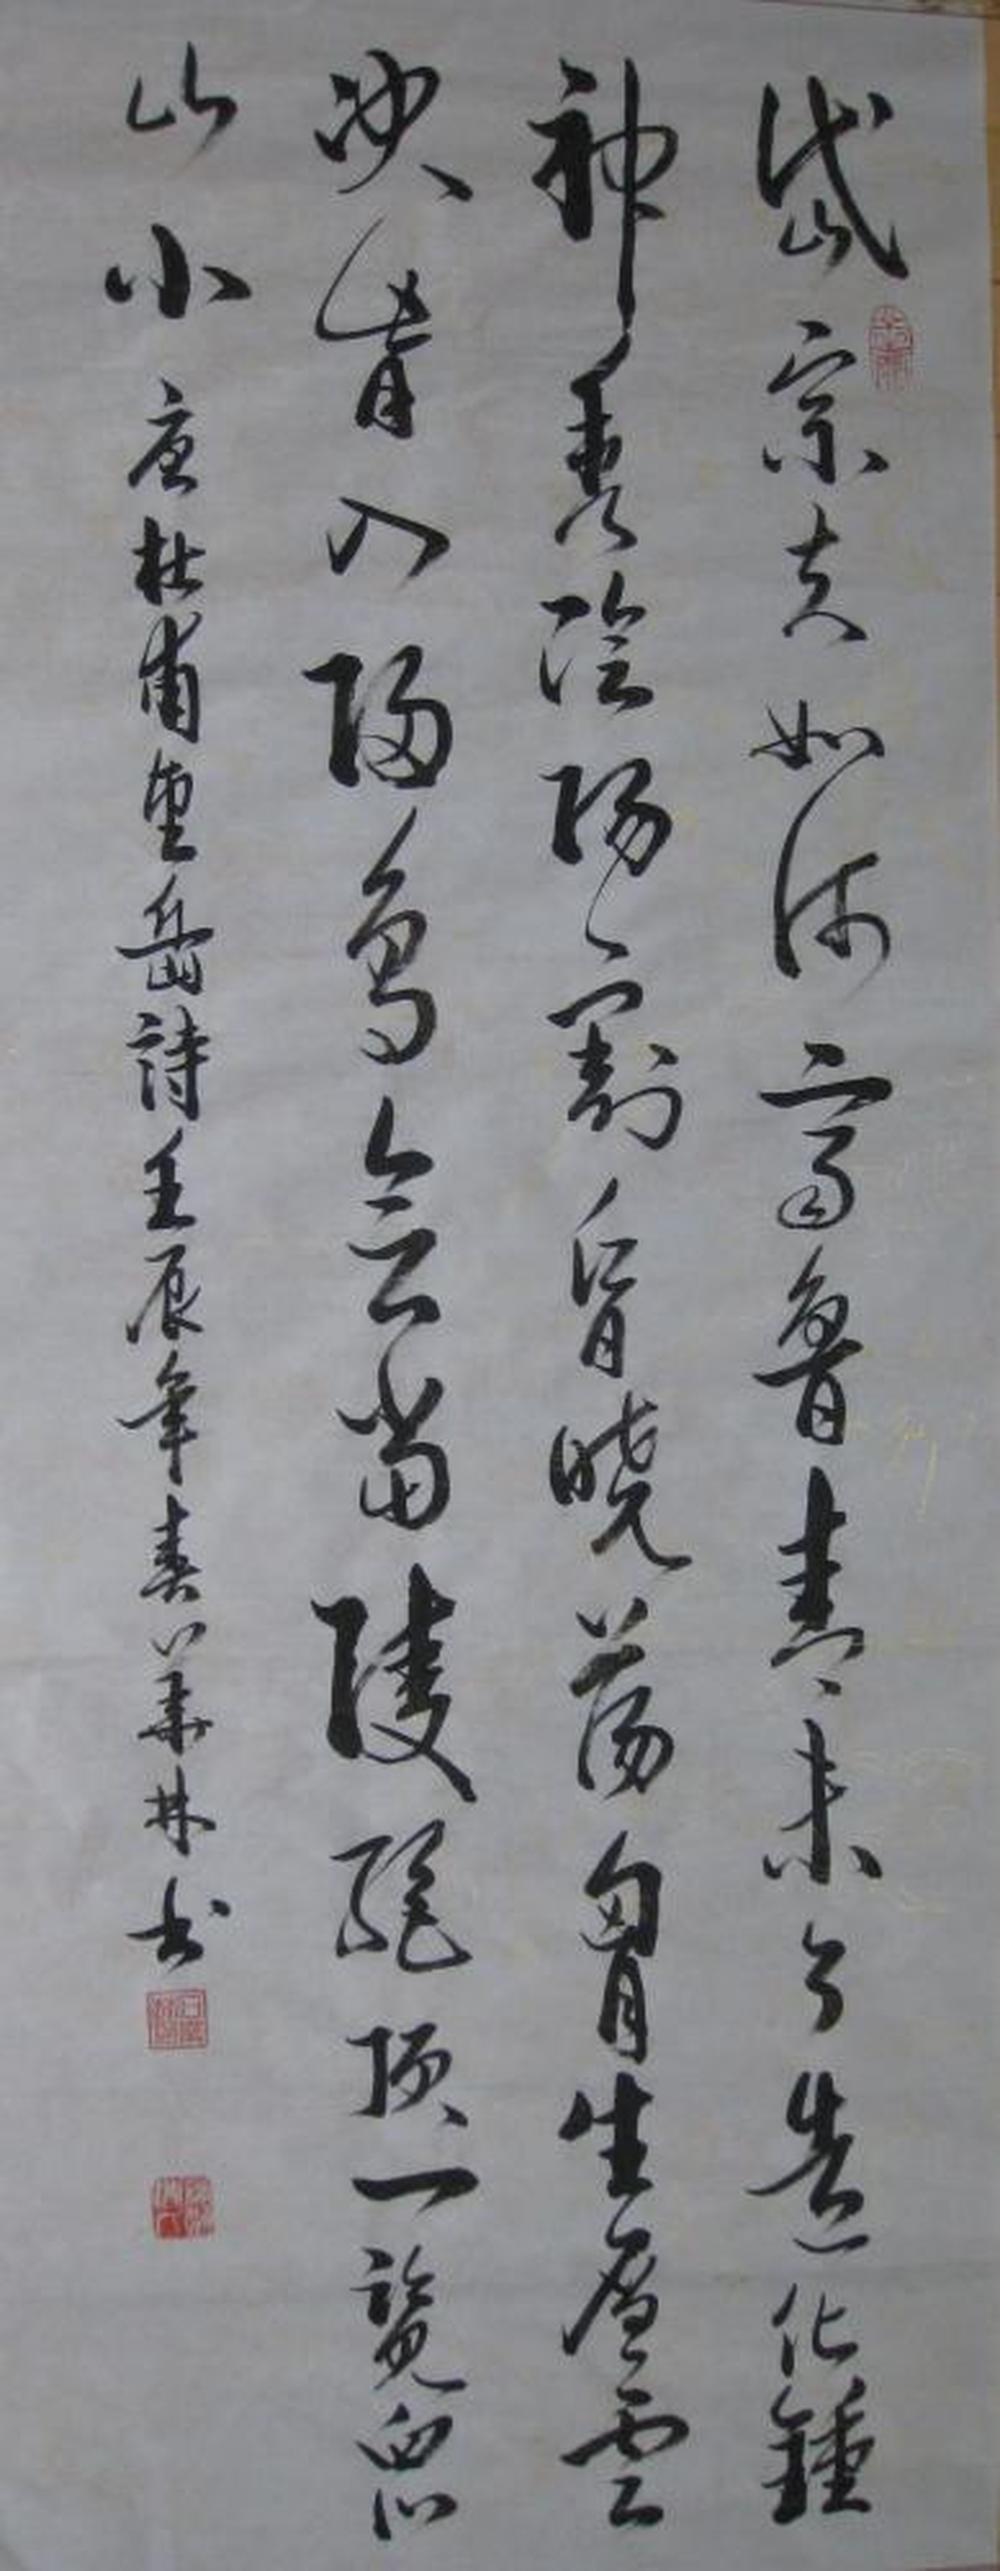 岱宗夫如何齊魯青未了造化鍾
神秀陰陽割昏曉蕩胷生層雲
決眥入歸鳥會當陵絕頂一覽眾
山小 唐杜甫望岳詩壬辰年春華林书